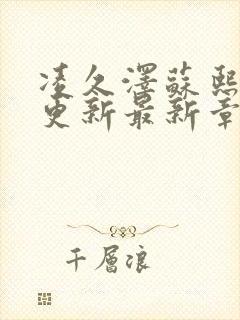 凌久澤蘇熙
更新最新章
千層浪